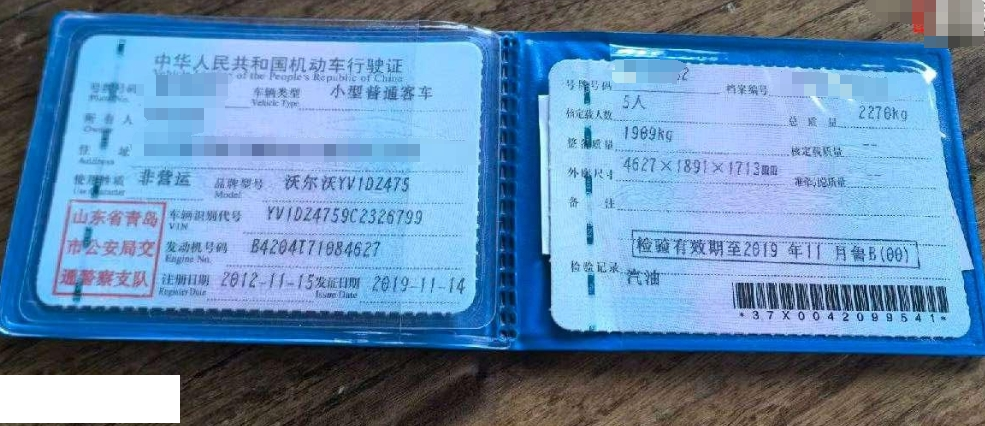 中华人民共和国机动车行驶证
Vehicle License of the People's Republic of China
号牌号码
Plate No.
车辆类型 小型普通客车
Vehicle Type
所有人
Owner
住址
Address
使用性质 非营运 品牌型号 沃尔沃YV1DZ475
Use Character Model
山东省青岛
市公安局交
通警察支队
车辆识别代号 YV1DZ4759C2326799
VIN
发动机号码 B4204T71084627
Engine No.
注册日期 2012-11-15 发证日期 2019-11-14
Register Date Issue Date
号牌号码 档案编号
核定载人数 5人 总质量 2270kg
整备质量 1909kg 核定载质量 --
外廓尺寸 4627×1891×1713mm 准牵引总质量 --
备注
检验有效期至2019年11月鲁B(00)
检验记录
汽油
*37X0042099541*